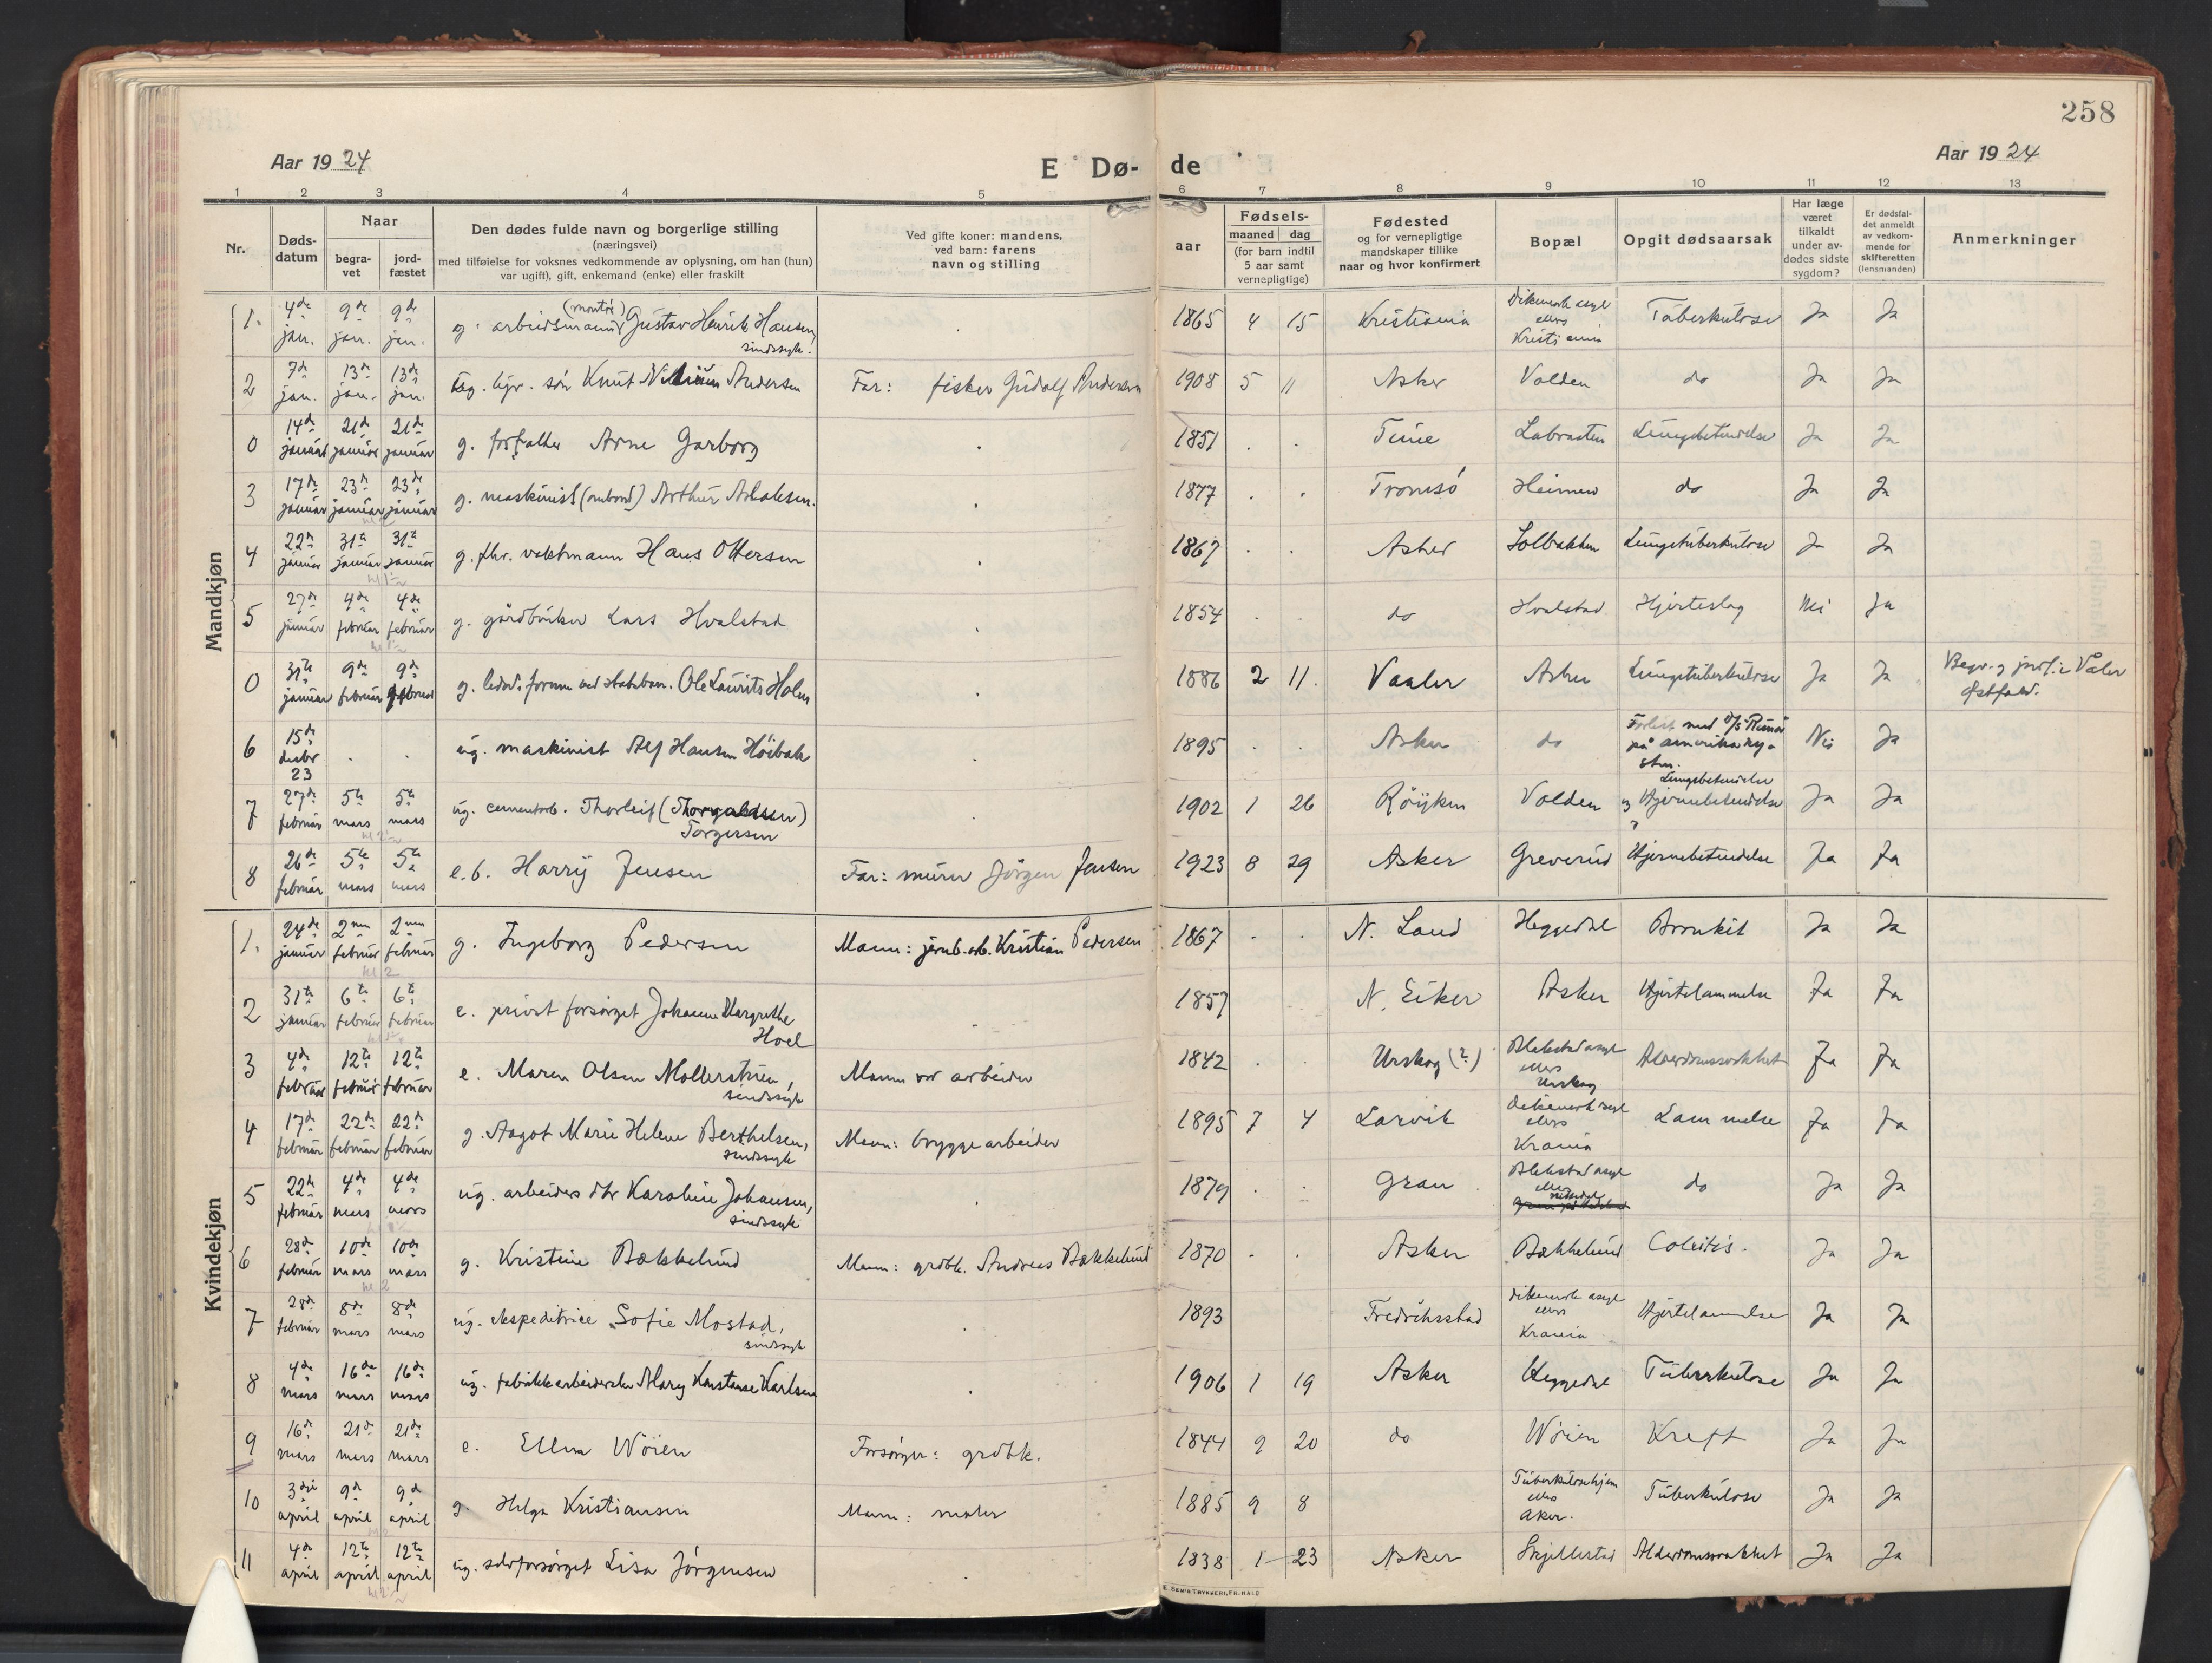 258
Aar 1924
E Dø-
de
Aar 1924
1 2 3 4 5 6 7 8 9 10 11 12 13
Nr.
Døds-
datum
Naar
begra-
vet
jord-
fæstet
Den dødes fulde navn og borgerlige stilling
(næringsvei)
med tilføielse for voksnes vedkommende av oplysning, om han (hun)
var ugift), gift, enkemand (enke) eller fraskilt
Ved gifte koner: mandens,
ved barn: farens
navn og stilling
aar
Fødsels-
maaned dag
(for barn indtil
5 aar samt
vernepligtige)
Fødested
og for vernepligtige
mandskaper tillike
naar og hvor konfirmert
Bopæl
Opgit dødsaarsak
Har læge
været
tilkaldt
under av-
dødes sidste
sygdom?
Er dødsfal-
det anmeldt
av vedkom-
mende for
skifteretten
(lensmanden)
Anmerkninger
Mandkjøn
1. 4de jan. 9de jan. 9de jan. g. arbeidsmann (montør) Gustav Henrik Hansen, sindssyk. 1865 4 15 Kristiania Dikemark asyl ellers Kristiania Tuberkulose Ja Ja
2 7de jan. 13de jan. 13de jan. ug. Andersen Far: fisker Gudolf Andersen 1908 5 11 Asker Volden do Ja Ja
0 14de januar 21de januar 21de januar g. forfatter Arne Garborg 1851 Time Labraaten Lungebetendelse Ja Ja
3 17de januar 23de januar 23de januar g. maskinist (ombord) Arthur Aslaksen. 1877 Tromsö Heimen do Ja Ja
4 22de januar 31te januar 31te januar g. fhv. vaktmann Hans Ottersen 1867 Asker Solbakken Lungetuberkulose Ja Ja
5 27de januar 4de februar 4de februar g. gårdbruker Lars Hvalstad 1854 do Hvalstad Hjerteslag Nei Ja
0 31te januar 9de februar 9de februar g. Ole Laurits Holm 1886 2 11. Vaaler Asker Lungetuberkulose Ja Ja Begr. og jordf. i Våler Østfold.
6 15de desbr 23 ug. maskinist Alf Hansen Höibak 1895 Asker do Forlist med D/S på amerikaky- sten. Nei Ja
7 27de februar 5te mars 5te mars ug. cementarb. Thorleif (Thorvaldsen) Torgersen 1902 1 26 Röyken Volden Lungebetendelse og Hjernebetendelse ? Ja Ja
8 26de februar 5te mars 5te mars e.b. Harry Jensen Far: murer Jörgen Jensen 1923 8 29 Asker Greverud Hjernebetendelse Ja Ja
Kvindekjøn
1. 24de januar 2nen februar 2nen februar g. Ingeborg Pedersen Mann: jernb.arb. Kristian Pedersen 1867 N. Land Heggedal Bronkit Ja Ja
2 31te januar 6te februar 6te februar e. privat forsörget Johanne Margrethe Hoel 1857 N. Eiker Asker Hjertelammelse Ja Ja
3 4de februar 12te februar 12te februar e. Maren Olsen Mollerstuen, sindssyk Mann var arbeider 1842 Urskog (?) Blakstad asyl ellers Urskog Alderdomssvakhet Ja Ja
4 17de februar 22de februar 22de februar g. Aagot Marie Helene Berthelsen, sindssyk Mann: bryggearbeider 1895 7 4 Larvik Dikemark asyl ellers Krania Lammelse Ja Ja
5 22de februar 4de mars 4de mars ug. arbeiders dtr Karoline Johansen, sindssyk 1879 Gran Blakstad asyl ellers do Ja Ja
6 28de februar 10de mars 10de mars g. Kristine Bækkelund Mann: grdbk. Andreas Bækkelund 1870 Asker Bækkelund Ja Ja
7 28de februar 8de mars 8de mars ug. ekspeditrice Sofie Mostad, sindssyk 1893 Fredrikstad Dikemark asyl ellers Krania Hjertelammelse Ja Ja
8 4de mars 16de mars 16de mars ug. fabrikkarbeiderske Mary Konstanse Karlsen 1906 1 19 Asker Heggedal Tuberkulose Ja Ja
9 16de mars 21de mars 21de mars e. Ellen Wöien Forsörger: grdbk. 1844 9 20 do Wöien Kreft Ja Ja
10 3dje april 9de april 9de april g. Helga Kristiansen Mann: maler 1885 9 8 Tuberkulosehjem ellers Aker. Tuberkulose Ja Ja
11 4de april 12te april 12te april ug. selvforsörget Lisa Jörgensen 1838 1 23 Asker Skjellestad Alderdomssvakhet Ja Ja
E. SEM'S TRYKKERI, FR.HALD